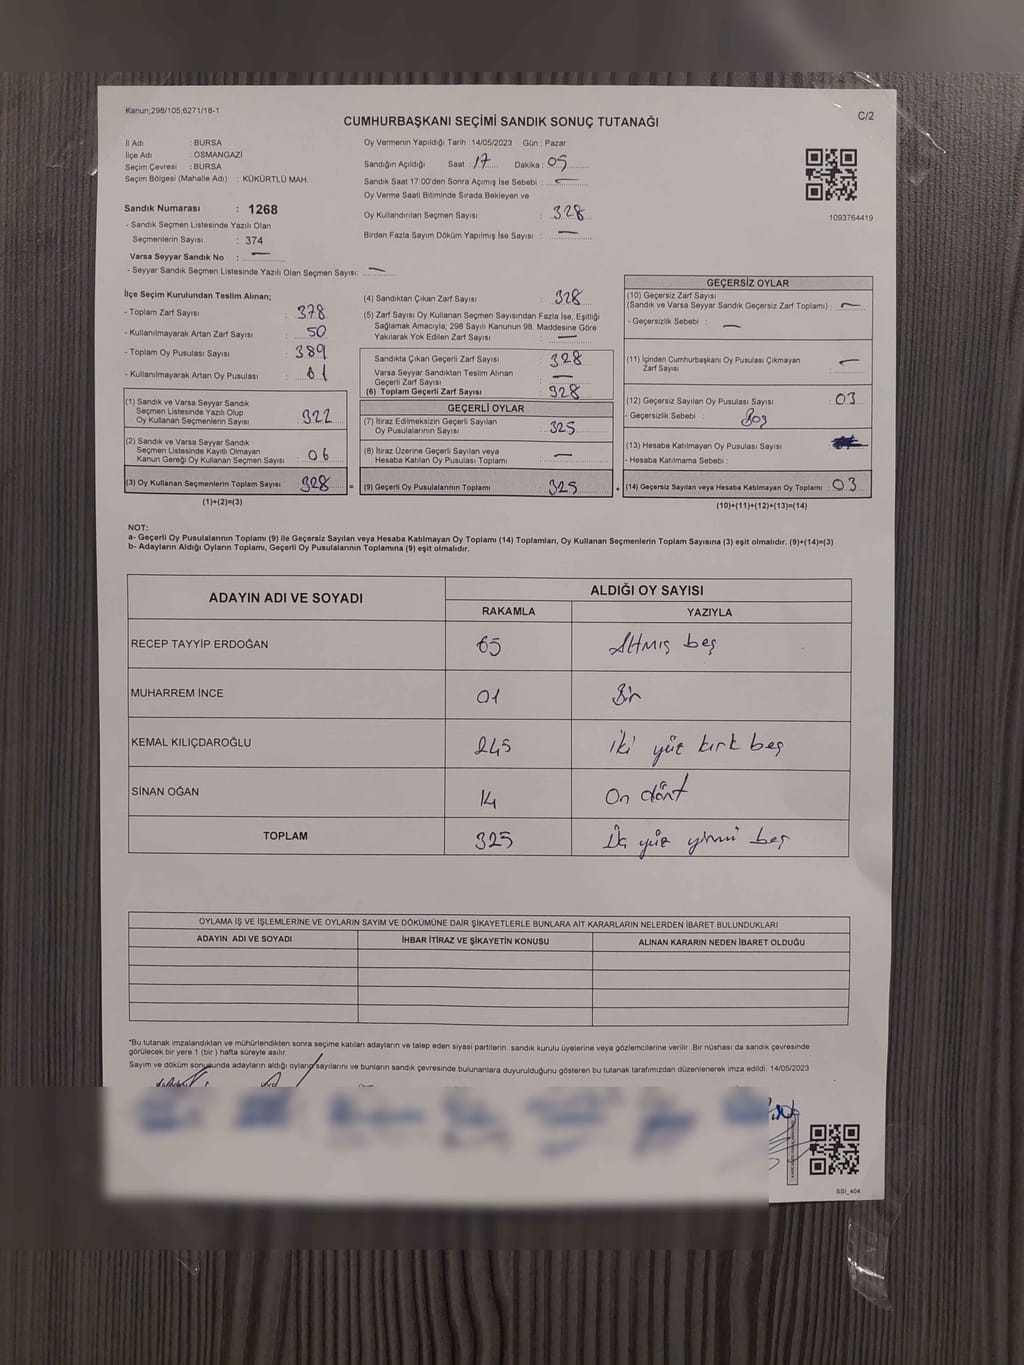 Kanun;298/105;6271/18-1
C/2
CUMHURBAŞKANI SEÇİMİ SANDIK SONUÇ TUTANAĞI
İl Adı : BURSA
İlçe Adı : OSMANGAZİ
Seçim Çevresi : BURSA
Seçim Bölgesi (Mahalle Adı) : KÜKÜRTLÜ MAH.
Sandık Numarası : 1268
- Sandık Seçmen Listesinde Yazılı Olan
Seçmenlerin Sayısı : 374
Varsa Seyyar Sandık No : —
- Seyyar Sandık Seçmen Listesinde Yazılı Olan Seçmen Sayısı: —
Oy Vermenin Yapıldığı Tarih :14/05/2023 Gün : Pazar
Sandığın Açıldığı Saat : 17 Dakika : 05
Sandık Saat 17:00'den Sonra Açımış İse Sebebi : —
Oy Verme Saati Bitiminde Sırada Bekleyen ve
Oy Kullandırılan Seçmen Sayısı : 328
Birden Fazla Sayım Döküm Yapılmış İse Sayısı : —
1093764419
İlçe Seçim Kurulundan Teslim Alınan;
- Toplam Zarf Sayısı : 378
- Kullanılmayarak Artan Zarf Sayısı : 50
- Toplam Oy Pusulası Sayısı : 389
- Kullanılmayarak Artan Oy Pusulası :
(1) Sandık ve Varsa Seyyar Sandık
Seçmen Listesinde Yazılı Olup
Oy Kullanan Seçmenlerin Sayısı : 322
(2) Sandık ve Varsa Seyyar Sandık
Seçmen Listesinde Kayıtlı Olmayan
Kanun Gereği Oy Kullanan Seçmen Sayısı : 06
(3) Oy Kullanan Seçmenlerin Toplam Sayısı : 328 =
(1)+(2)=(3)
(4) Sandıktan Çıkan Zarf Sayısı : 328
(5) Zarf Sayısı Oy Kullanan Seçmen Sayısından Fazla İse, Eşitliği
Sağlamak Amacıyla; 298 Sayılı Kanunun 98. Maddesine Göre
Yakılarak Yok Edilen Zarf Sayısı : —
Sandıkta Çıkan Geçerli Zarf Sayısı : 328
Varsa Seyyar Sandıktan Teslim Alınan
Geçerli Zarf Sayısı : —
(6) Toplam Geçerli Zarf Sayısı : 328
GEÇERLİ OYLAR
(7) İtiraz Edilmeksizin Geçerli Sayılan
Oy Pusulalarının Sayısı : 325
(8) İtiraz Üzerine Geçerli Sayılan veya
Hesaba Katılan Oy Pusulası Toplamı : —
(9) Geçerli Oy Pusulalarının Toplamı : 325 +
GEÇERSİZ OYLAR
(10) Geçersiz Zarf Sayısı
(Sandık ve Varsa Seyyar Sandık Geçersiz Zarf Toplamı) : —
- Geçersizlik Sebebi : —
(11) İçinden Cumhurbaşkanı Oy Pusulası Çıkmayan
Zarf Sayısı : —
(12) Geçersiz Sayılan Oy Pusulası Sayısı : 03
- Geçersizlik Sebebi : Boş
(13) Hesaba Katılmayan Oy Pusulası Sayısı :
- Hesaba Katılmama Sebebi :
(14) Geçersiz Sayılan veya Hesaba Katılmayan Oy Toplamı : 03
(10)+(11)+(12)+(13)=(14)
NOT:
a- Geçerli Oy Pusulasının Toplamı (9) ile Geçersiz Sayılan veya Hesaba Katılmayan Oy Toplamı (14) Toplamları, Oy Kullanan Seçmenlerin Toplam Sayısına (3) eşit olmalıdır. (9)+(14)=(3)
b- Adayların Aldığı Oyların Toplamı, Geçerli Oy Pusulalarının Toplamına (9) eşit olmalıdır.
ADAYIN ADI VE SOYADI
ALDIĞI OY SAYISI
RAKAMLA YAZIYLA
RECEP TAYYİP ERDOĞAN 65 Altmış beş
MUHARREM İNCE 01 Bir
KEMAL KILIÇDAROĞLU 245 iki yüz kırk beş
SİNAN OĞAN 14 On dört
TOPLAM 325 yüz yirmi beş
OYLAMA İŞ VE İŞLEMLERİNE VE OYLARIN SAYIM VE DÖKÜMÜNE DAİR ŞİKAYETLERLE BUNLARA AİT KARARLARIN NELERDEN İBARET BULUNDUKLARI
ADAYIN ADI VE SOYADI İHBAR İTİRAZ VE ŞİKAYETİN KONUSU ALINAN KARARIN NEDEN İBARET OLDUĞU
*Bu tutanak imzalandıktan ve mühürlendikten sonra seçime katılan adayların ve talep eden siyasi partilerin sandık kurulu üyelerine veya gözlemcilerine verilir .Bir nüshası da sandık çevresinde
görülecek bir yere 1 (bir ) hafta süreyle asılır.
Sayım ve döküm sonucunda adayların aldığı oyların sayılarını ve bunların sandık çevresinde bulunanlara duyurulduğunu gösteren bu tutanak tarafımızdan düzenlenerek imza edildi. 14/05/2023
SSI_404